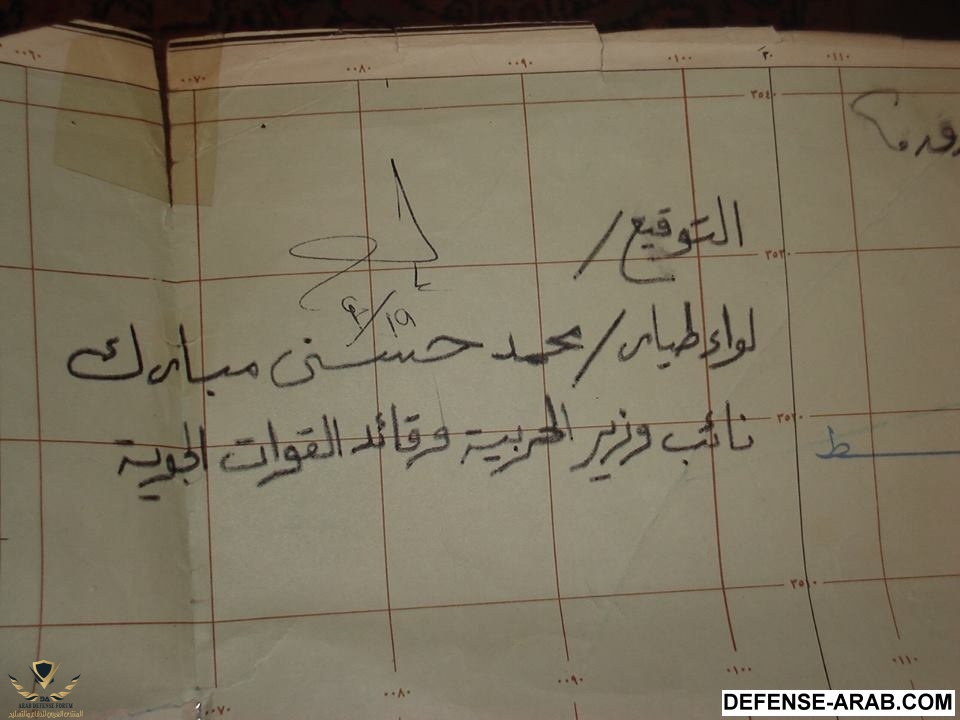 ٠٠٦٠ ٠٠٧٠ ٠٠٨٠ ٠٠٩٠ ٠١٠٠ ٣٠ ٠١١٠
٣٥٤٠
التوقيع /
٣٥٣٠
١٩/٩
لواء طيار / محمد حسنى مبارك
٣٥٢٠
نائب وزير الحربية وقائد القوات الجوية
ط
٣٥١٠
٠٠٧٠ ٠٠٨٠ ٠٠٩٠ ٠١٠٠ ٠١١٠
ARAB DEFENSE FORUM
المنتدى العربي للدفاع والتسليح
DEFENSE-ARAB.COM